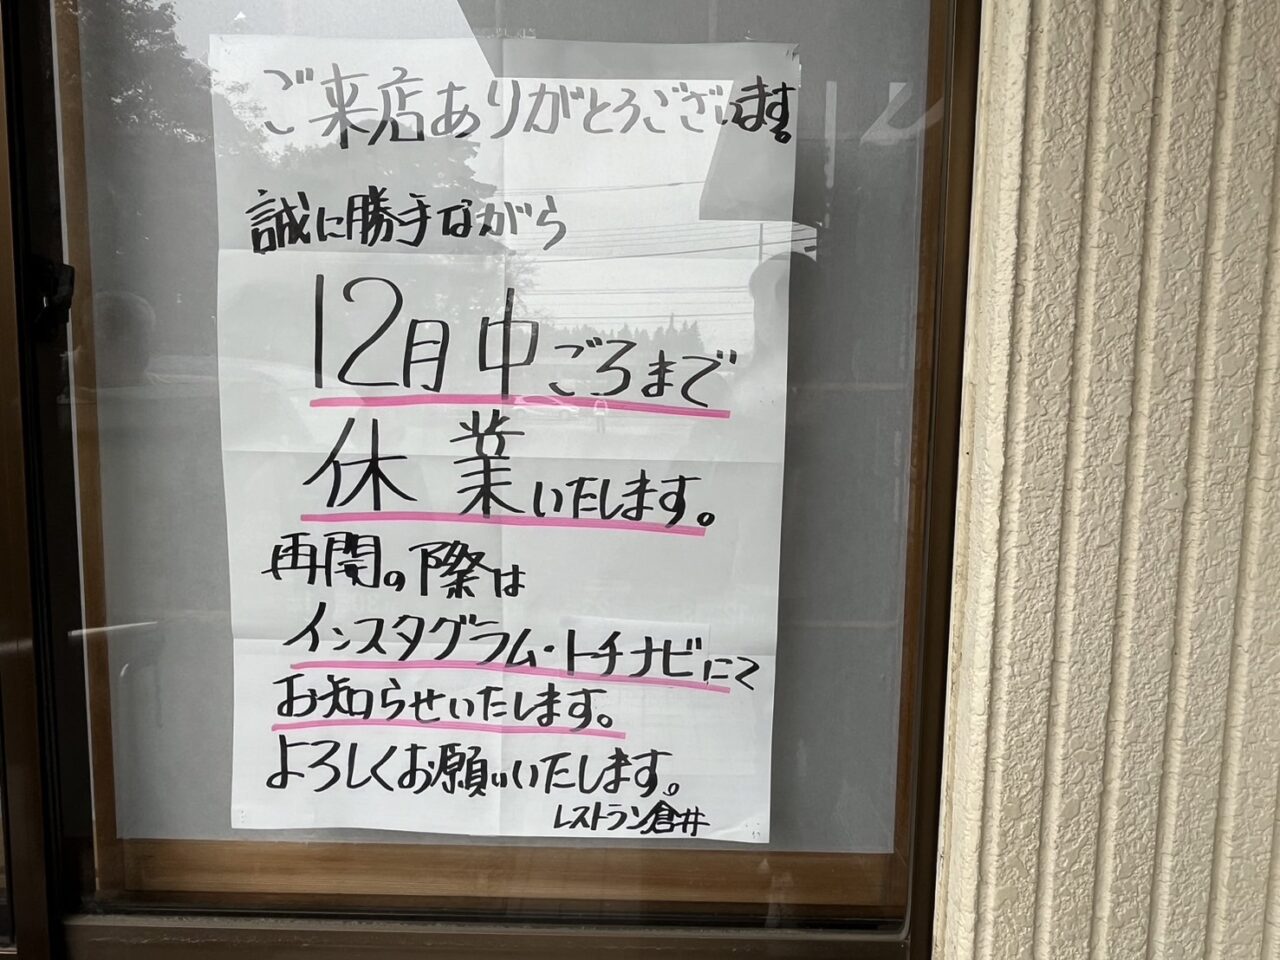 ご来店ありがとうございます。
誠に勝手ながら
12月中ごろまで
休業いたします。
再開の際は
インスタグラム・トチナビにて
お知らせいたします。
よろしくお願いいたします。
レストラン倉井